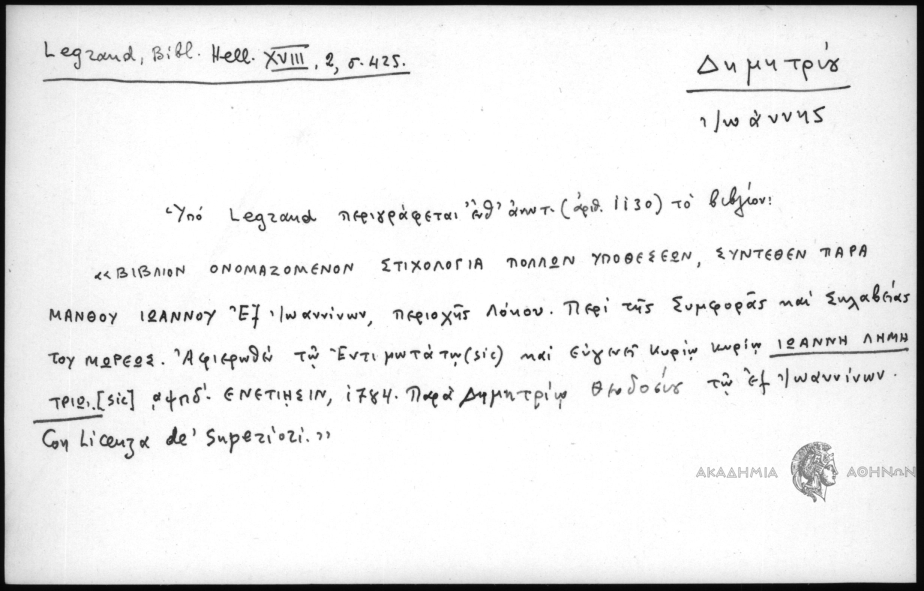 Legrand, Bibl. Hell. XVIII, 2, σ. 425.
Δημητρίου
Ἰωάννης
Ὑπό Legrand περιγράφεται ἐνθ' ἀνωτ. (ἀριθ. 1130) τό βιβλίον:
«ΒΙΒΛΙΟΝ ΟΝΟΜΑΖΟΜΕΝΟΝ ΣΤΙΧΟΛΟΓΙΑ ΠΟΛΛΩΝ ΥΠΟΘΕΣΕΩΝ, ΣΥΝΤΕΘΕΝ ΠΑΡΑ
ΜΑΝΘΟΥ ΙΩΑΝΝΟΥ Ἐξ Ἰωαννίνων, περιοχῆς Λόκου. Περί τῆς Συμφορᾶς καί Σκλαβείας
του ΜΩΡΕΩΣ. Ἀφιερωθέν τῷ Ἐντιμωτάτῳ (sic) καί εὐγενεῖ κυρίῳ κυρίῳ ΙΩΑΝΝΗ ΛΗΜΗ
ΤΡΙΩΙ. [sic] ͵αψπδ'. ΕΝΕΤΙΗΣΙΝ, 1784. Παρά Δημητρίῳ Θεοδοσίου τῷ ἐξ Ἰωαννίνων.
Con Licenza de' Superiori.»
ΑΚΑΔΗΜΙΑ ΑΘΗΝΩΝ